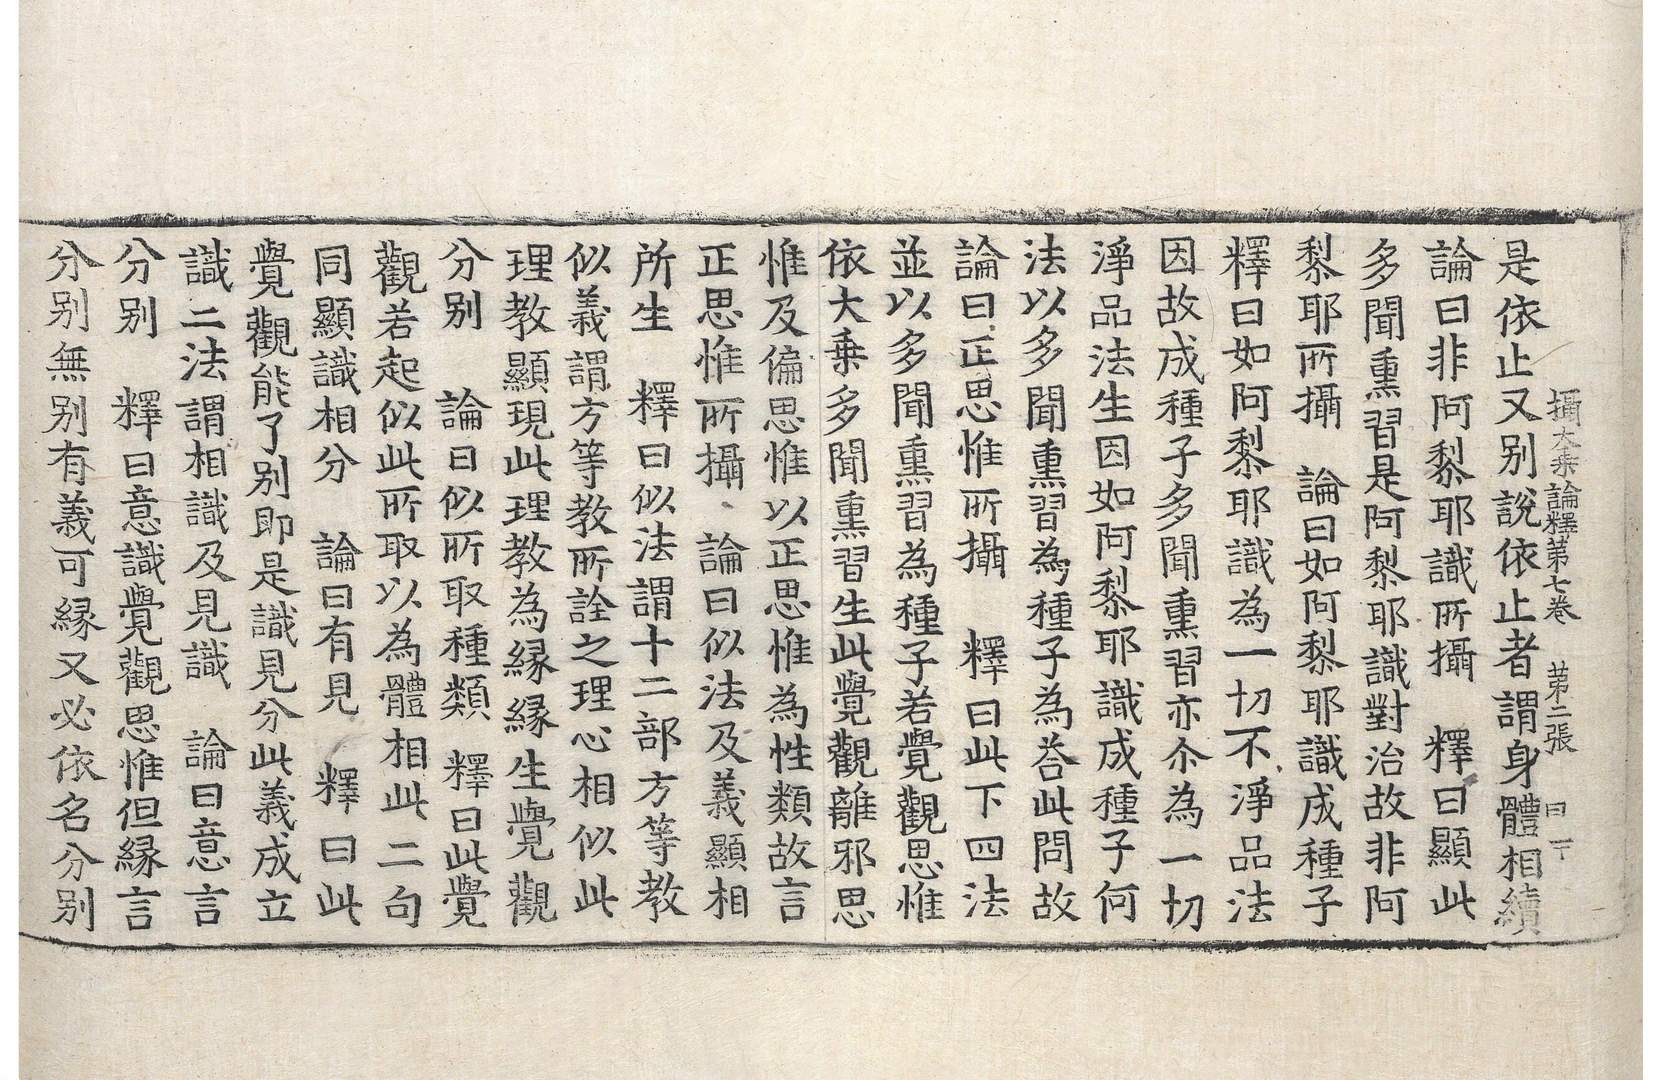 攝大乗論釋苐七卷 苐二張 曰下
是依止又别說依止者謂身體相續
論曰非阿黎耶識所攝 釋曰顯此
多聞熏習是阿黎耶識對治故非阿
黎耶所攝 論曰如阿黎耶識成種子
釋曰如阿黎耶識為一切不淨品法
因故成種子多聞熏習亦尒為一切
淨品法生因如阿黎耶識成種子何
法以多聞熏習為種子為荅此問故
論曰正思惟所攝 釋曰此下四法
並以多聞熏習為種子若覺觀思惟
依大乗多聞熏習生此覺觀離邪思
惟及偏思惟以正思惟為性類故言
正思惟所攝 論曰似法及義顯相
所生 釋曰似法謂十二部方等教
似義謂方等教所詮之理心相似此
理教顯現此理教為縁縁生覺觀
分别 論曰似所取種類 釋曰此覺
觀若起似此所取以為體相此二句
同顯識相分 論曰有見 釋曰此
覺觀能了别即是識見分此義成立
識二法謂相識及見識 論曰意言
分别 釋曰意識覺觀思惟但縁言
分别無别有義可縁又必依名分别